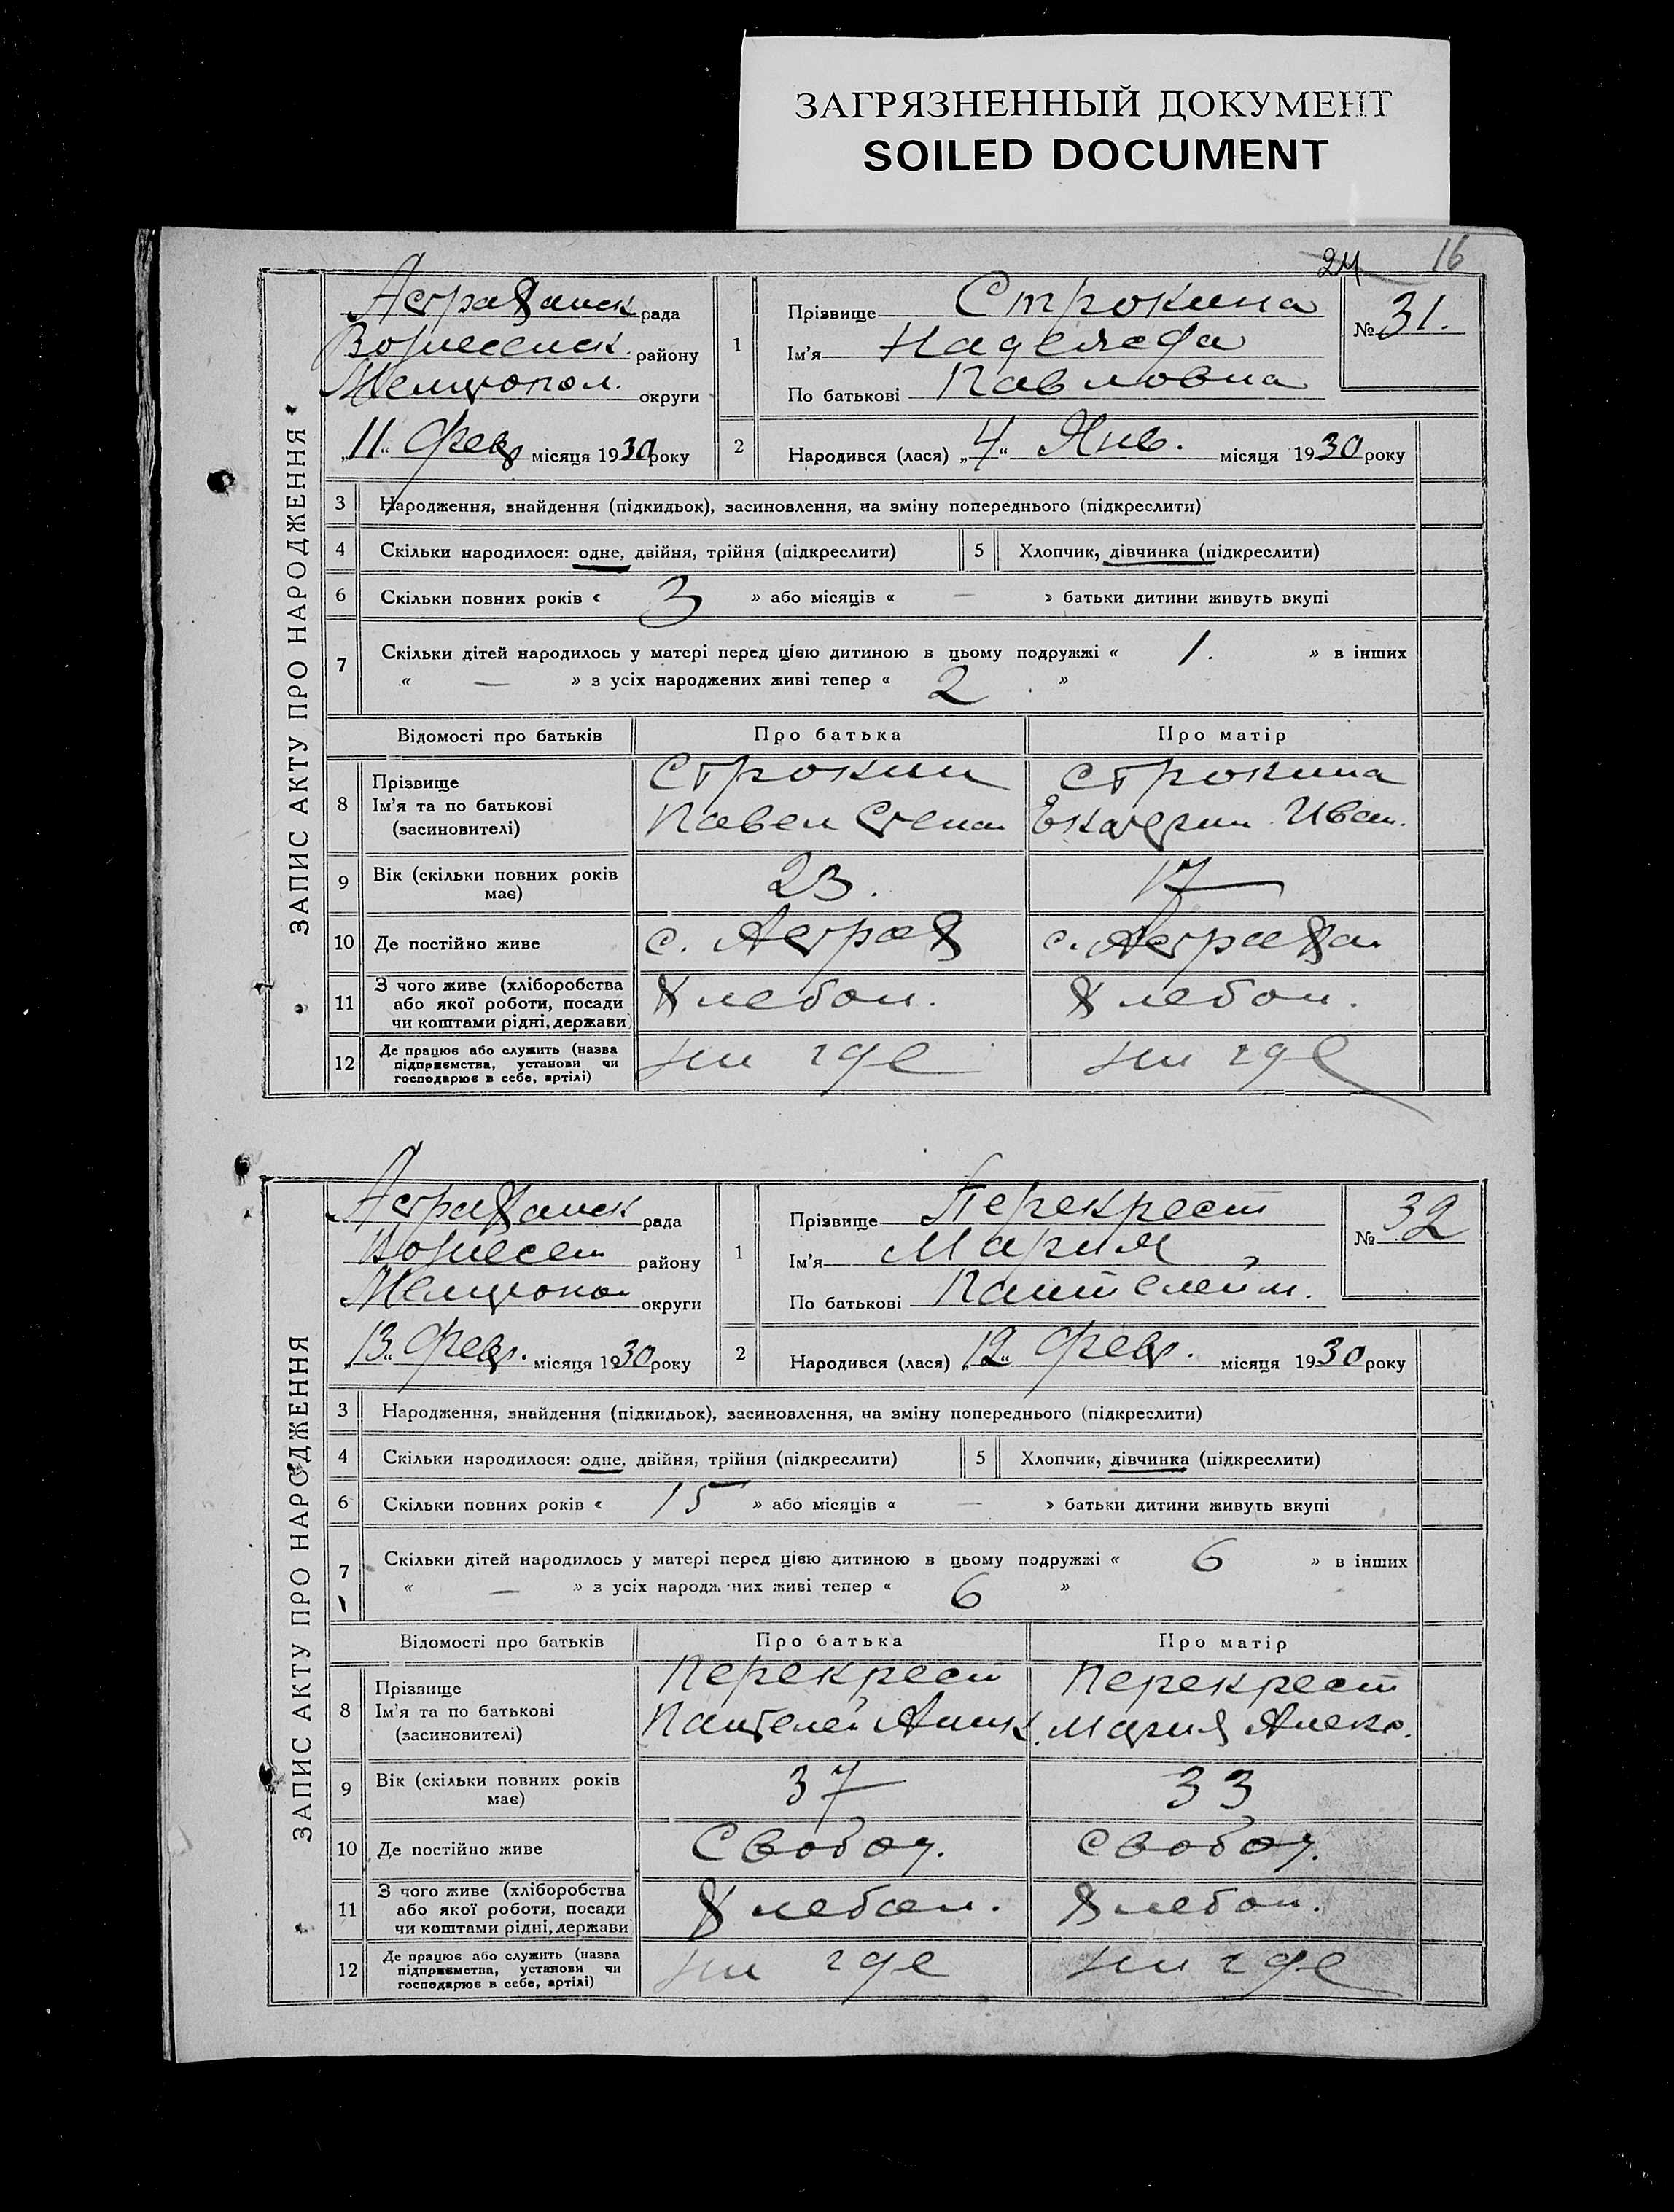 ЗАГРЯЗНЕННЫЙ ДОКУМЕНТ
SOILED DOCUMENT
24 16
ЗАПИС АКТУ ПРО НАРОДЖЕННЯ
Астраханск рада
Вознесенск. району
Мелитопол. округи
„11“ Февр місяця 1930 року
1 Прізвище Строкина
Ім'я Надежда
По батькові Павловна
№ 31.
2 Народився (лася) „4“ Янв. місяця 1930 року
3 Народження, знайдення (підкидьок), засиновлення, на зміну попереднього (підкреслити)
4 Скільки народилося: одне, двійня, трійня (підкреслити) 5 Хлопчик, дівчинка (підкреслити)
6 Скільки повних років « 3 » або місяців « — » батьки дитини живуть вкупі
7 Скільки дітей народилось у матері перед цією дитиною в цьому подружжі « 1. » в інших
« — » з усіх народжених живі тепер « 2 »
Відомості про батьків Про батька Про матір
8 Прізвище
Ім'я та по батькові
(засиновителі)
Строкин
Павел Степан
Строкина
Екатерин Иван.
9 Вік (скільки повних років
має)
23. 17
10 Де постійно живе с. Астрах с. Астрахан
11 З чого живе (хліборобства
або якої роботи, посади
чи коштами рідні, держави)
Хлебоп. Хлебоп.
12 Де працює або служить (назва
підприємства, установи чи
господарює в себе, артілі)
ни где ни где
ЗАПИС АКТУ ПРО НАРОДЖЕННЯ
Астраханск рада
Вознесен району
Мелитопол округи
„13“ Февр. місяця 1930 року
1 Прізвище Перекрест
Ім'я Мария
По батькові Пантелейм.
№ 32
2 Народився (лася) „12“ Февр. місяця 1930 року
3 Народження, знайдення (підкидьок), засиновлення, на зміну попереднього (підкреслити)
4 Скільки народилося: одне, двійня, трійня (підкреслити) 5 Хлопчик, дівчинка (підкреслити)
6 Скільки повних років « 15 » або місяців « — » батьки дитини живуть вкупі
7 Скільки дітей народилось у матері перед цією дитиною в цьому подружжі « 6 » в інших
« — » з усіх народж них живі тепер « 6 »
Відомості про батьків Про батька Про матір
8 Прізвище
Ім'я та по батькові
(засиновителі)
Перекрест
Пантелей
Перекрест
Мария Алекс.
9 Вік (скільки повних років
має)
37 33
10 Де постійно живе Свобод. Свобод.
11 З чого живе (хліборобства
або якої роботи, посади
чи коштами рідні, держави
Хлебоп. Хлебоп.
12 Де працює або служить (назва
підприємства, установи чи
господарює в себе, артілі)
ни где ни где